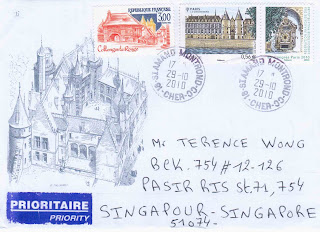 REPUBLIQUE FRANÇAISE
3,00
Collonges-la-Rouge
PARIS
0,56
ST AMAND MONTROND
17
29-10
2010
18-CHER-
ST AMAND MONTROND
17
29-10
2010
18-CHER-
Mr TERENCE WONG
BCK. 754 #12-126
PASIR RIS St. 71, 754
SINGAPOUR - SINGAPORE
51074.
PRIORITAIRE
PRIORITY